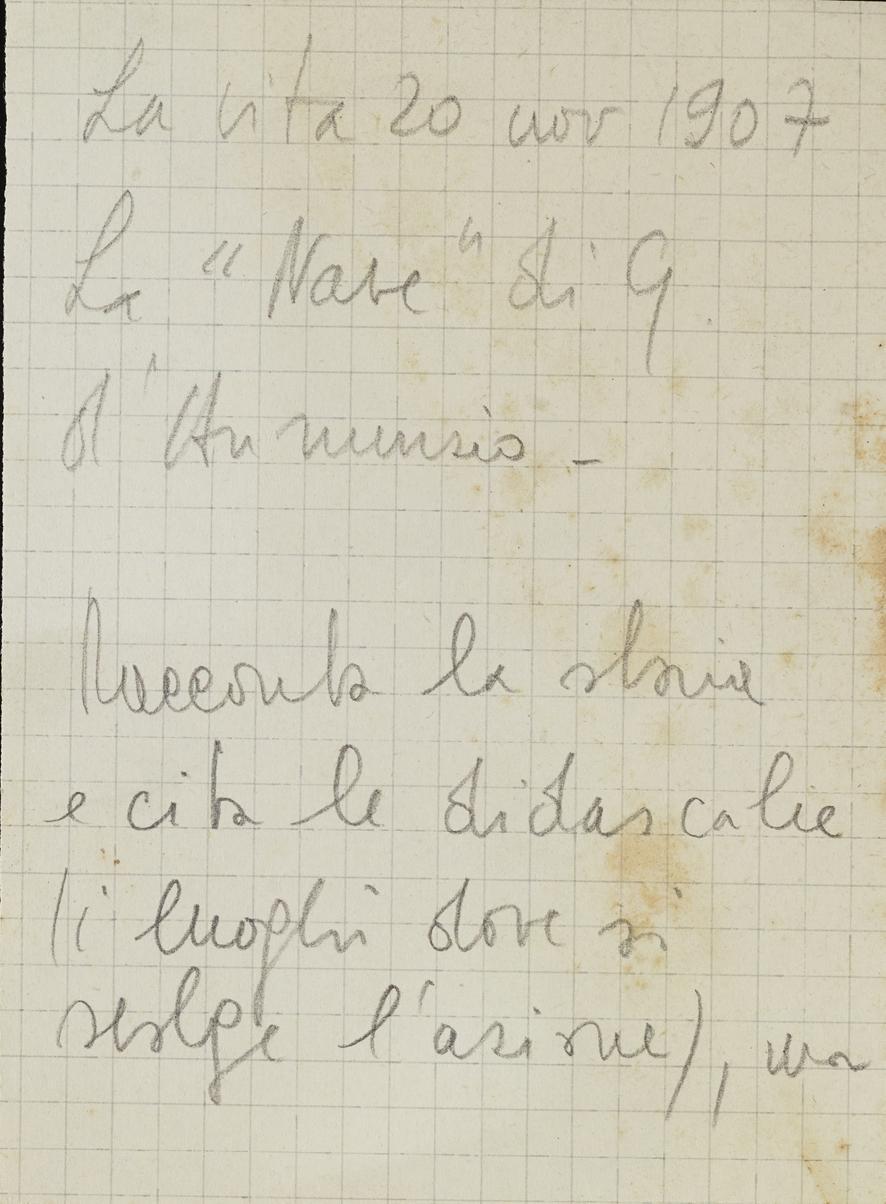 La vita 20 nov 1907
La "Nave" di G.
d'Annunzio -
Racconta la storia
e cita le didascalie
(i luoghi dove si
svolge l'azione), ma